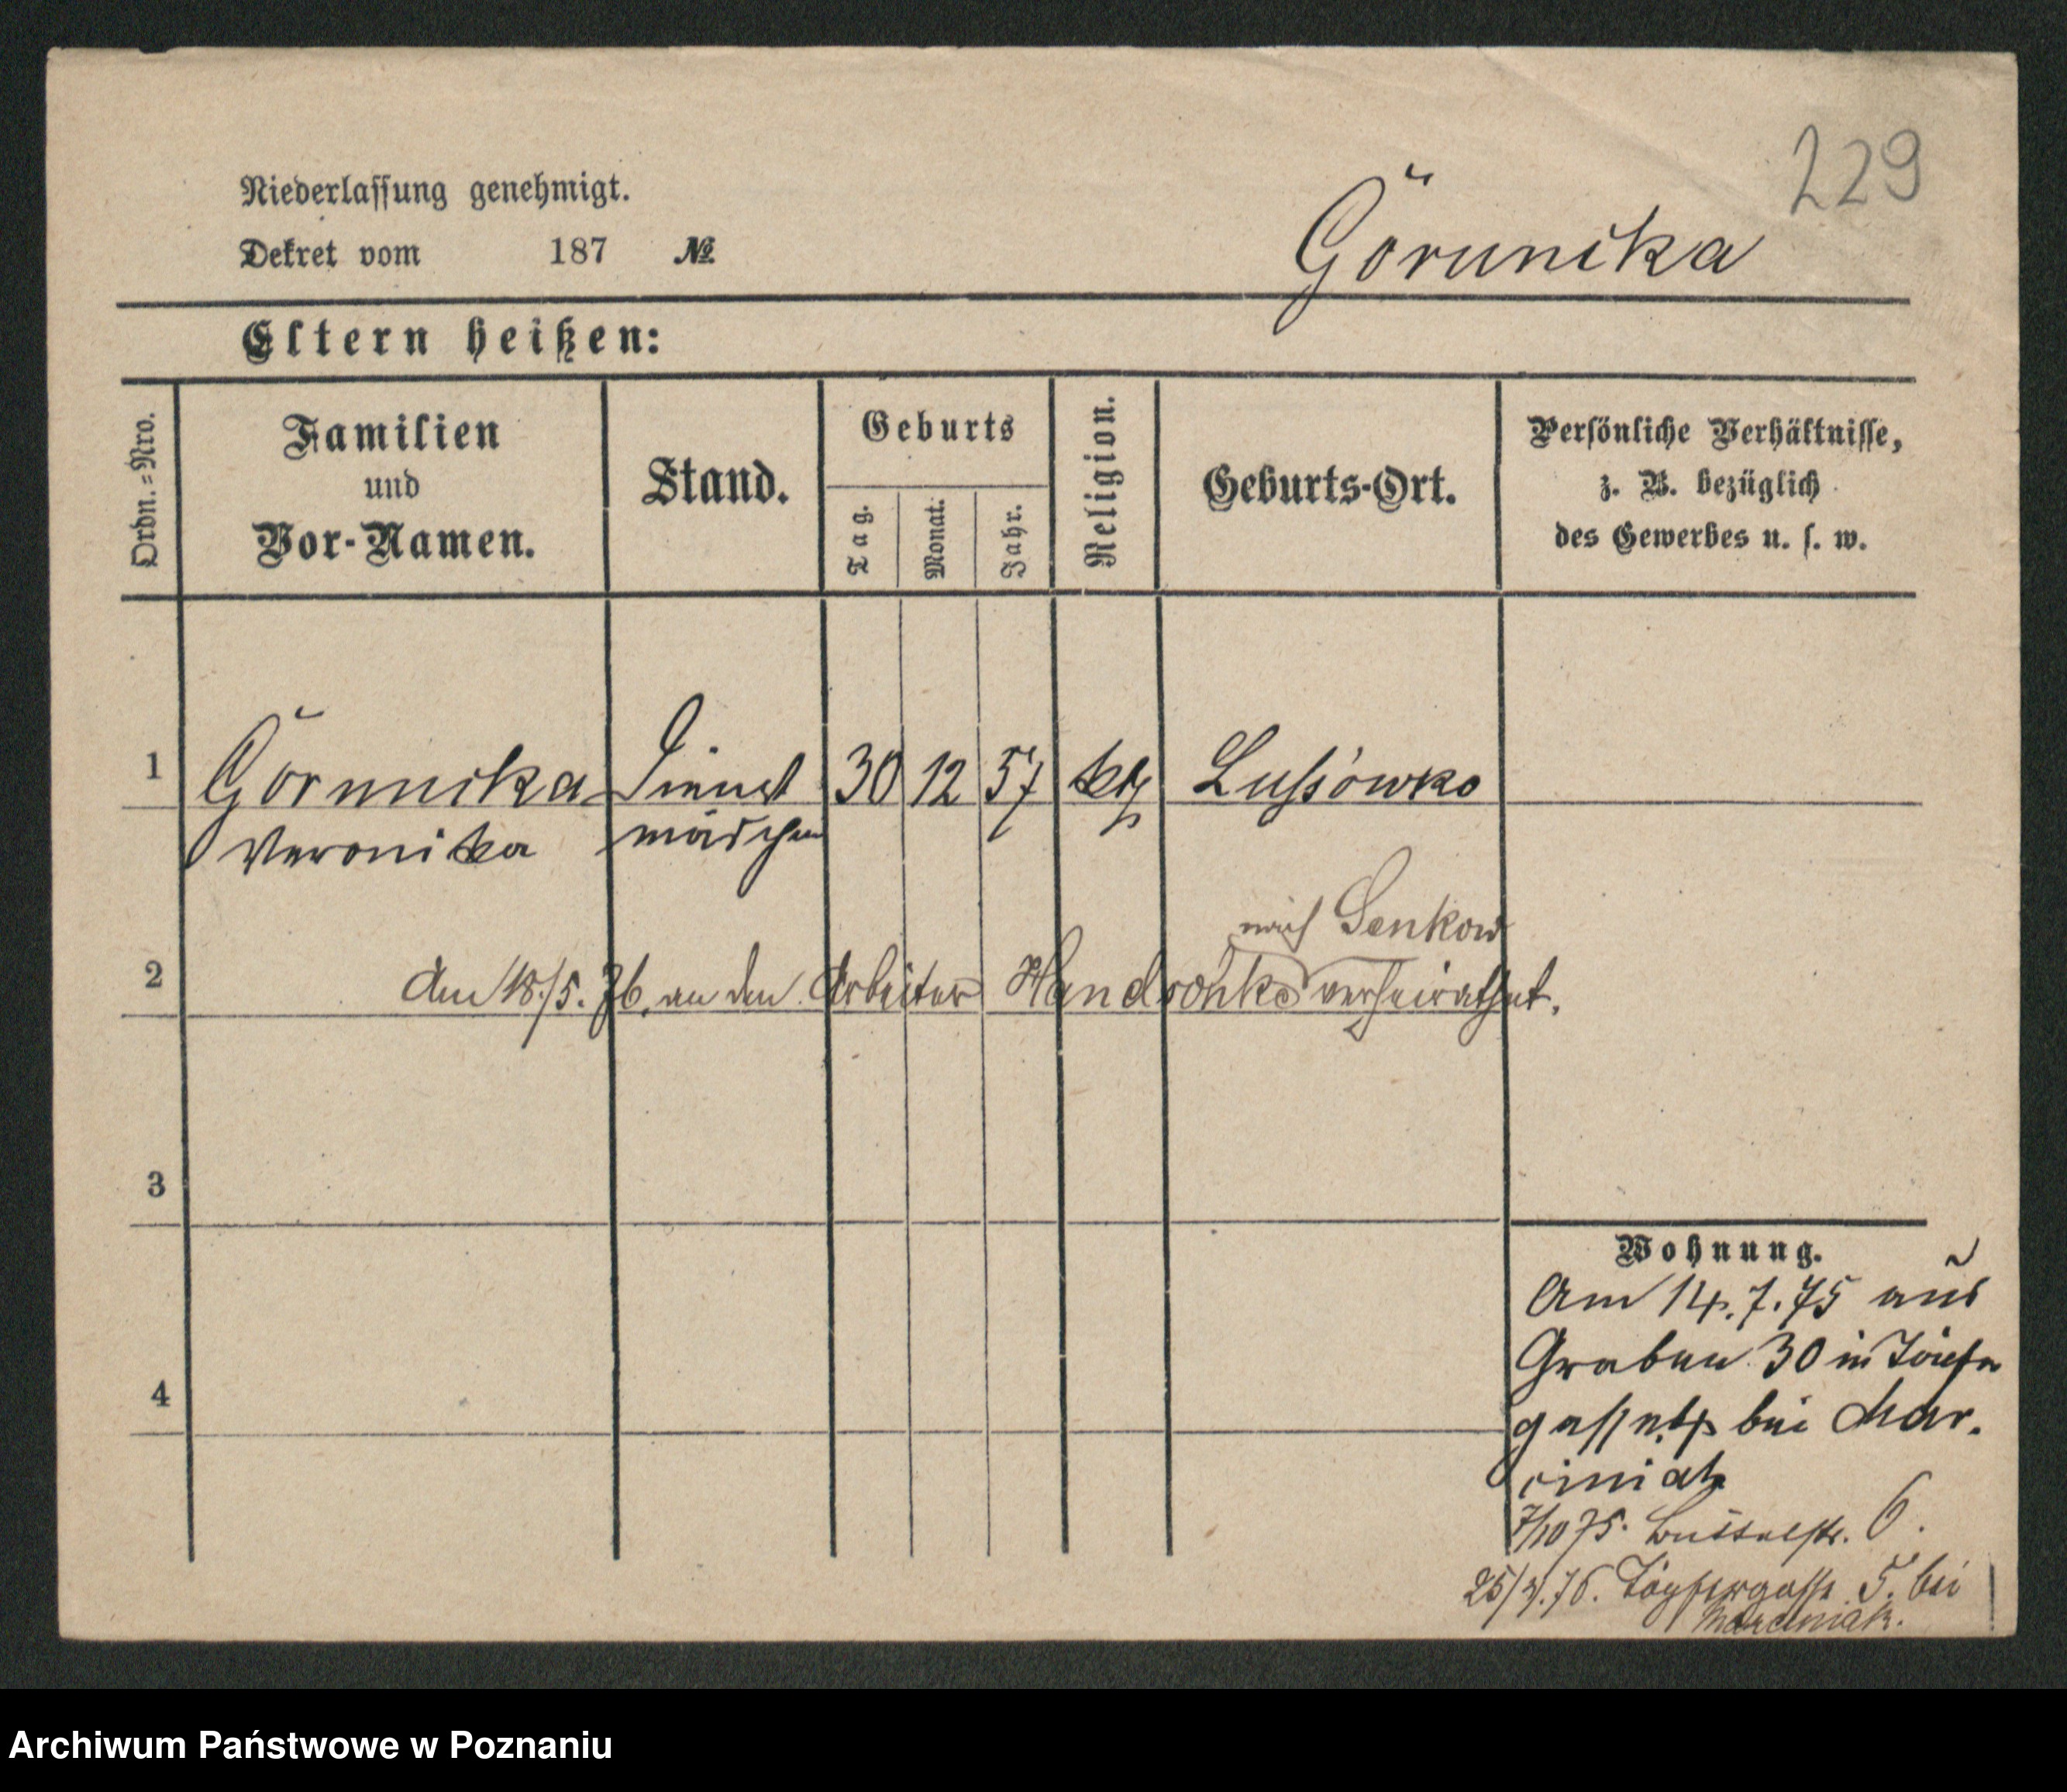 229
Niederlassung genehmigt.
Görunika
Dekret vom 187 №
Eltern heißen:
Ordn.-Nro.
Familien
und
Vor-Namen.
Stand.
Geburts
Tag.
Monat.
Jahr.
Religion.
Geburts-Ort.
Persönliche Verhältnisse,
z. B. bezüglich
des Gewerbes u. s. w.
1 Görunika Dienst 30 12 57 kth Lussówko
Veronika mädchen
nach Senkow
2 Am 18/5. 76. an den Arbeiter verheirathet.
3
Wohnung.
Am 14.7.75 aus
Graben 30 in
gasse bei Mar.
ciniak
4
7/10 75. 6.
25/ .76. Töpfergasse 5. bei
Marciniak.
Archiwum Państwowe w Poznaniu